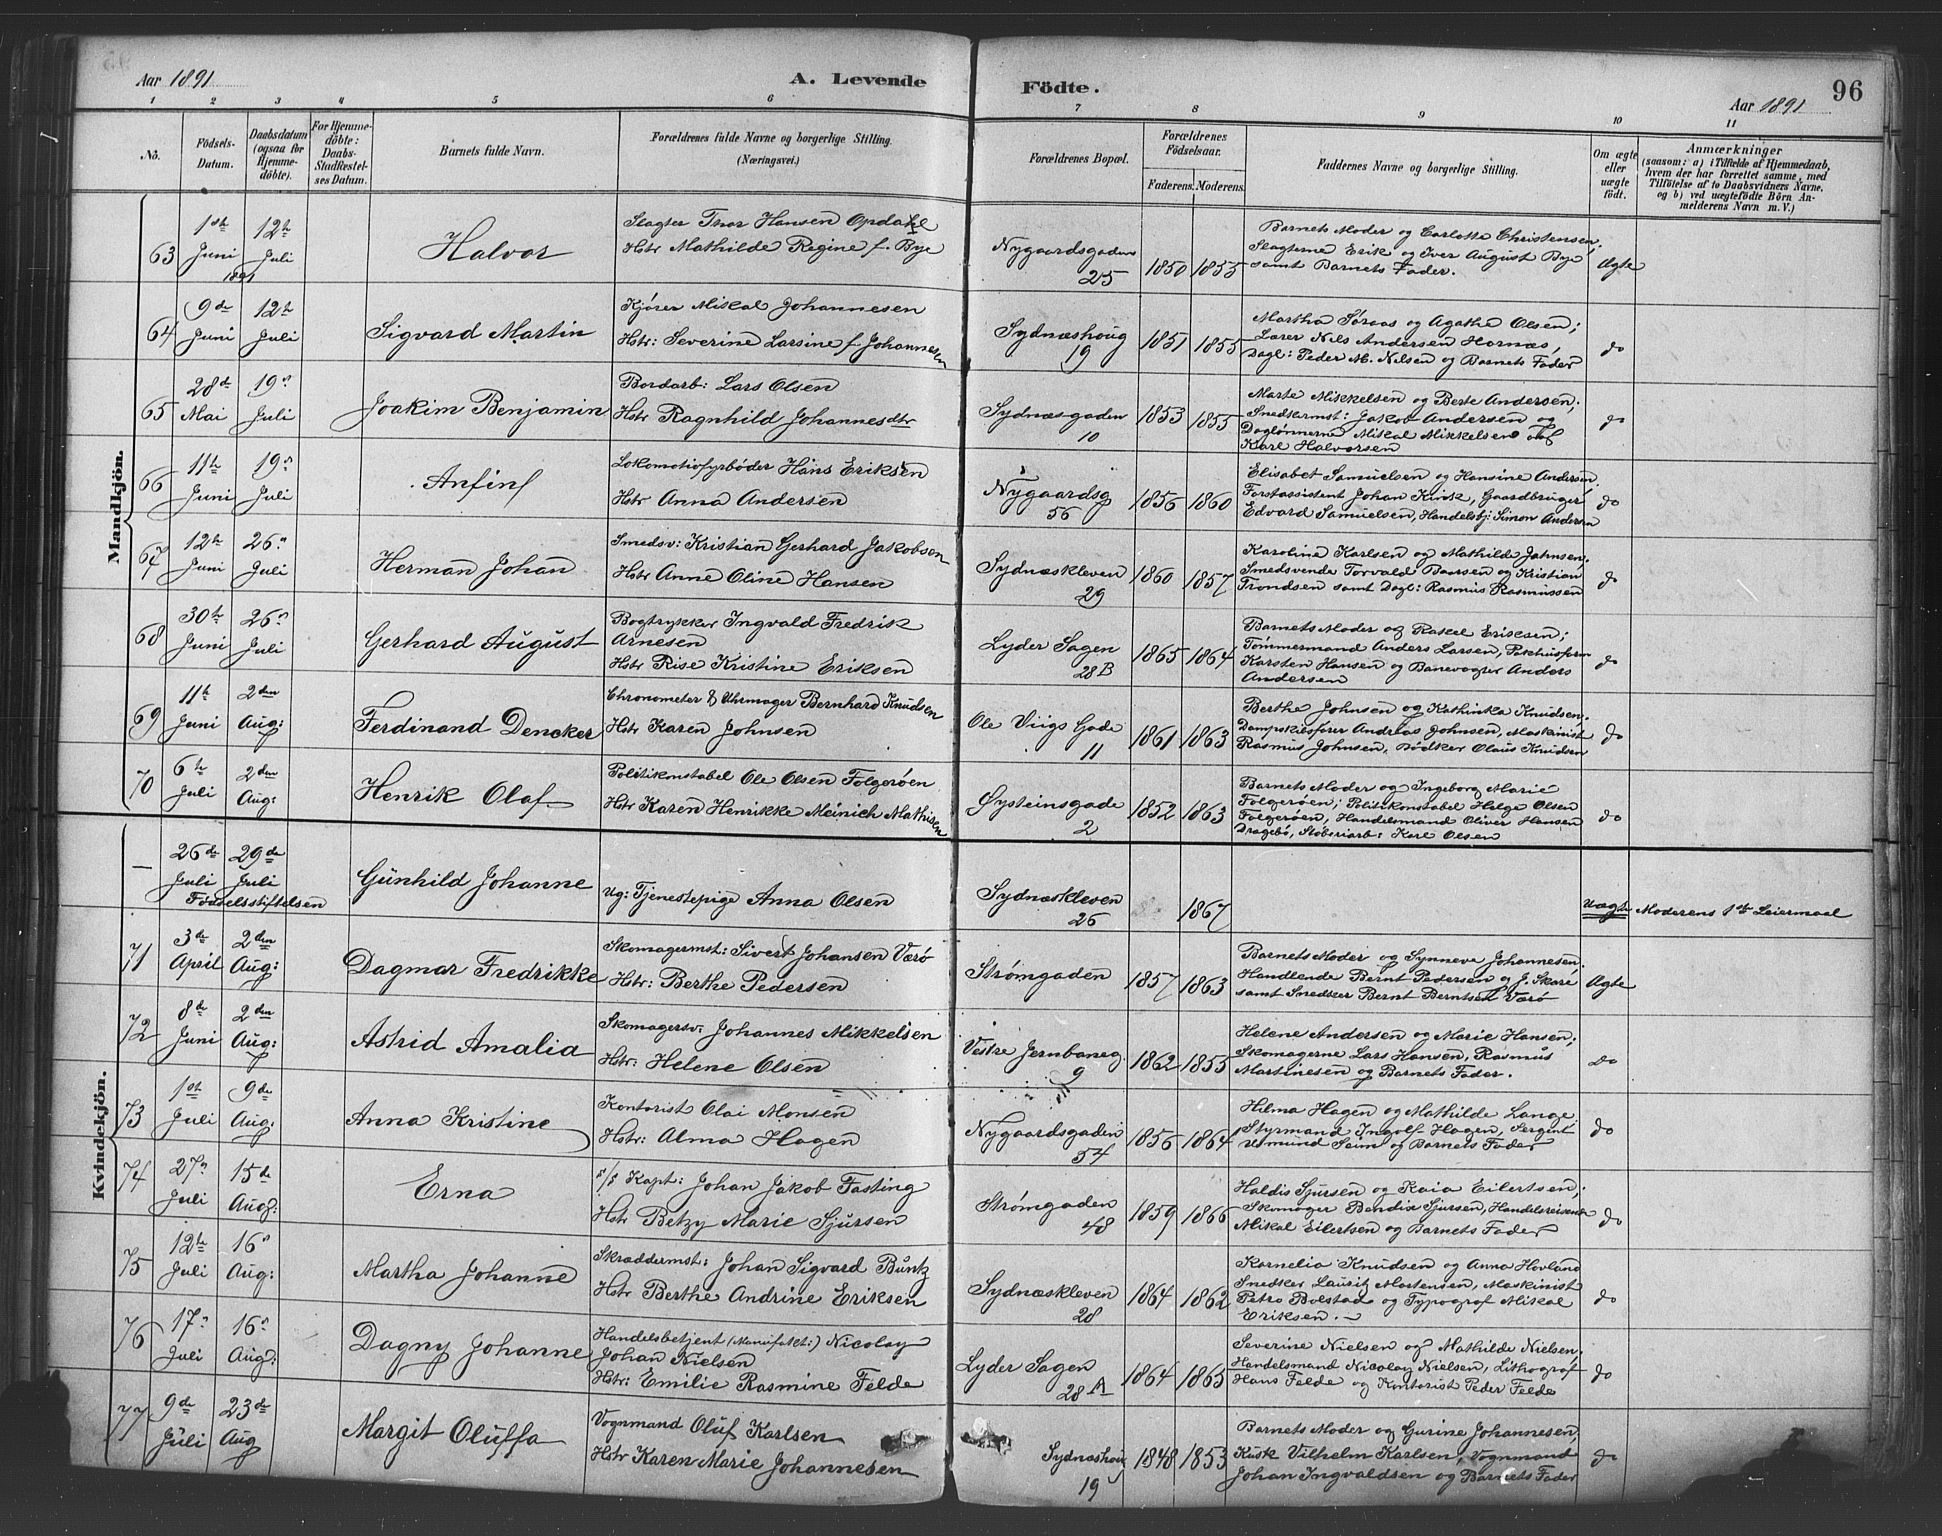 Aar 1891
A. Levende
Födte.
Aar 1891
96
1 2 3 4 5 6 7 8 9 10 11
No.
Födsels-
Datum.
Daabsdatum
(ogsaa for
Hjemme-
döbte).
For Hjemme-
döbte:
Daabs-
Stadfæstel-
ses Datum.
Barnets fulde Navn.
Forældrenes fulde Navne og borgerlige Stilling.
(Næringsvei.)
Forældrenes Bopæl.
Forældrenes
Födselsaar.
Faderens. Moderens.
Faddernes Navne og borgerlige Stilling.
Om ægte
eller
uægte
født.
Anmærkninger
(saasom: a) i Tilfælde af Hjemmedaab,
hvem der har forrettet samme, med
Tilføielse af to Daabsvidners Navne,
og b) ved uægtefødte Börn An-
melderens Navn m. V.)
Mandkjön.
63
1ste Juni 1891
12te Juli
Halvor
Slagter Thor Hansen Opdahl
Hstr Mathilde Regine f. Bye
Nygaardsgaden
25
1850 1855
Barnets Moder og Carlotte Christensen;
Slagterne Erik og Iver August Bye
samt Barnets Fader.
Ægte
64
9de Juni
12te Juli
Sigvard Martin
Kjører Mikal Johannesen
Hstr: Severine Larsine f. Johannesen
Sydnæshoug
19
1851 1855
Martha Søraas og Agathe Olsen;
Lærer Nils Andersen Hornæs,
Dagl: Peder M. Nilsen og Barnets Fader
do
65
28de Mai
19de Juli
Joakim Benjamin
Bordarb: Lars Olsen
Hstr Ragnhild Johannesdtr
Sydnæsgaden
10
1853 1855
Marte Mikkelsen og Berte Andersen;
Snedkermst: Jakob Andersen og
Daglønnerne Mikal Mikkelsen og
Karl Halvorsen
do
66
11te Juni
19de Juli
Anfinf
Lokomotivfyrbøder Hans Eriksen
Hstr Anna Andersen
Nygaardsg
56
1856 1860
Elisabet Samuelsen og Hansine Andersen.
Forstassistent Johan Kirk, Gaardbruger
Edvard Samuelsen, Handelsbj: Simon Andersen
do
67
12te Juni
26de Juli
Herman Johan
Smedsv: Kristian Gerhard Jakobsen
Hstr Anne Oline Hansen
Sydnæskleven
29
1860 1857
Karoline Karlsen og Mathilde Jahnsen;
Smedsvende Torvald Baarsen og Kristian
Trondsen samt Dagl: Rasmus Rasmussen
do
68
30te Juni
26de Juli
Gerhard August
Bogtrykker Ingvald Fredrik
Arnesen
Hstr Rise Kristine Eriksen
Lyder Sagen
28 B
1865 1864
Barnets Moder og Rakel Eriksen;
Tømmermand Anders Larsen, Pakhusform
Karsten Hansen og Banevogter Anders
Andersen
do
69
11te Juni
2den Aug:
Ferdinand Dencker
Chronometer & Uhrmager Bernhard Knudsen
Hstr Karen Johnsen
Ole Viigs Gade
11
1861 1863
Berthe Johnsen og Kathinka Knudsen.
Dampskibsfører Andreas Johnsen, Maskinist
Rasmus Johnsen, Bødker Olaus Knudsen
do
70
6te Juli
2den Aug:
Henrik Olaf
Politikonstabel Ole Olsen Folgerøen
Hstr Karen Henrikke Meinich Mathisen
Øysteinsgade
2
1852 1863
Barnets Moder og Ingeborg Marie
Folgerøen; Politikonstabel Helge Olsen
Folgerøen, Handelsmand Oliver Hansen
Dragebø, Støberiarb: Karl Olsen
do
Kvindekjön.
—
26de Juli
29de Juli
Fødselsstiftelsen
Gunhild Johanne
Ug: Tjenestepige Anna Olsen
Sydnæskleven
26
1867
Uægte
Moderens 1ste Leiermaal
71
3de April
2den Aug:
Dagmar Fredrikke
Skomagermst: Sivert Johansen Værø
Hstr: Berthe Pedersen
Strømgaden
1857 1863
Barnets Moder og Synneva Johannesen.
Handlende Bernt Pedersen og J. Skare
samt Snedker Bernt Berntsen Værø
Ægte
72
8de Juni
2den Aug:
Astrid Amalia
Skomagersv: Johannes Mikkelsen
Hstr: Helene Olsen
Vestre Jernbaneg.
9
1862 1855
Helene Andersen og Marie Hansen;
Skomagerne Lars Hansen, Rasmus
Martinesen og Barnets Fader.
do
73
1ste Juli
9de Aug:
Anna Kristine
Kontorist Olai Monsen
Hstr: Alma Hagen
Nygaardsgaden
54
1856 1864
Hilma Hagen og Mathilde Lange
Styrmand Ingolf Hagen, Sergent
Amund Seim og Barnets Fader
do
74
27de Juli
15de Aug:
Erna
S/S Kapt: Johan Jakob Fasting
Hstr Betzy Marie Sjursen
Strømgaden
48
1859 1866
Haldis Sjursen og Kaia Eilertsen;
Skomager Bendix Sjursen, Handelsreisende
Mikal Eilertsen og Barnets Fader
do
75
12te Juli
16de Aug:
Martha Johanne
Skræddermst: Johan Sigvard Buntz
Hstr Berthe Andrine Eriksen
Sydnæskleven
28
1864 1862
Kornelia Knudsen og Anna Hovland
Snedker Lauritz Mortensen, Maskinist
Petro Bolstad og Typograf Mikal
Eriksen. —
do
76
17de Juli
16de Aug:
Dagny Johanne
Handelsbetjent (Manufakt:) Nicolay
Johan Nielsen
Hstr: Emilie Rasmine Felde
Lyder Sagen
28 A
1864 1865
Severine Nielsen og Mathilde Nielsen.
Handelsmand Nicolay Nielsen, Lithograf
Hans Felde og Kontorist Peder Felde
do
77
9de Juli
23de Aug
Margit Oluffa
Vognmand Oluf Karlsen
Hstr Karen Marie Johannesen
Sydnæshoug
19
1848 1853
Barnets Moder og Gurine Johannesen,
Kusk Vilhelm Karlsen, Vognmand
Johan Ingvaldsen og Barnets Fader
do